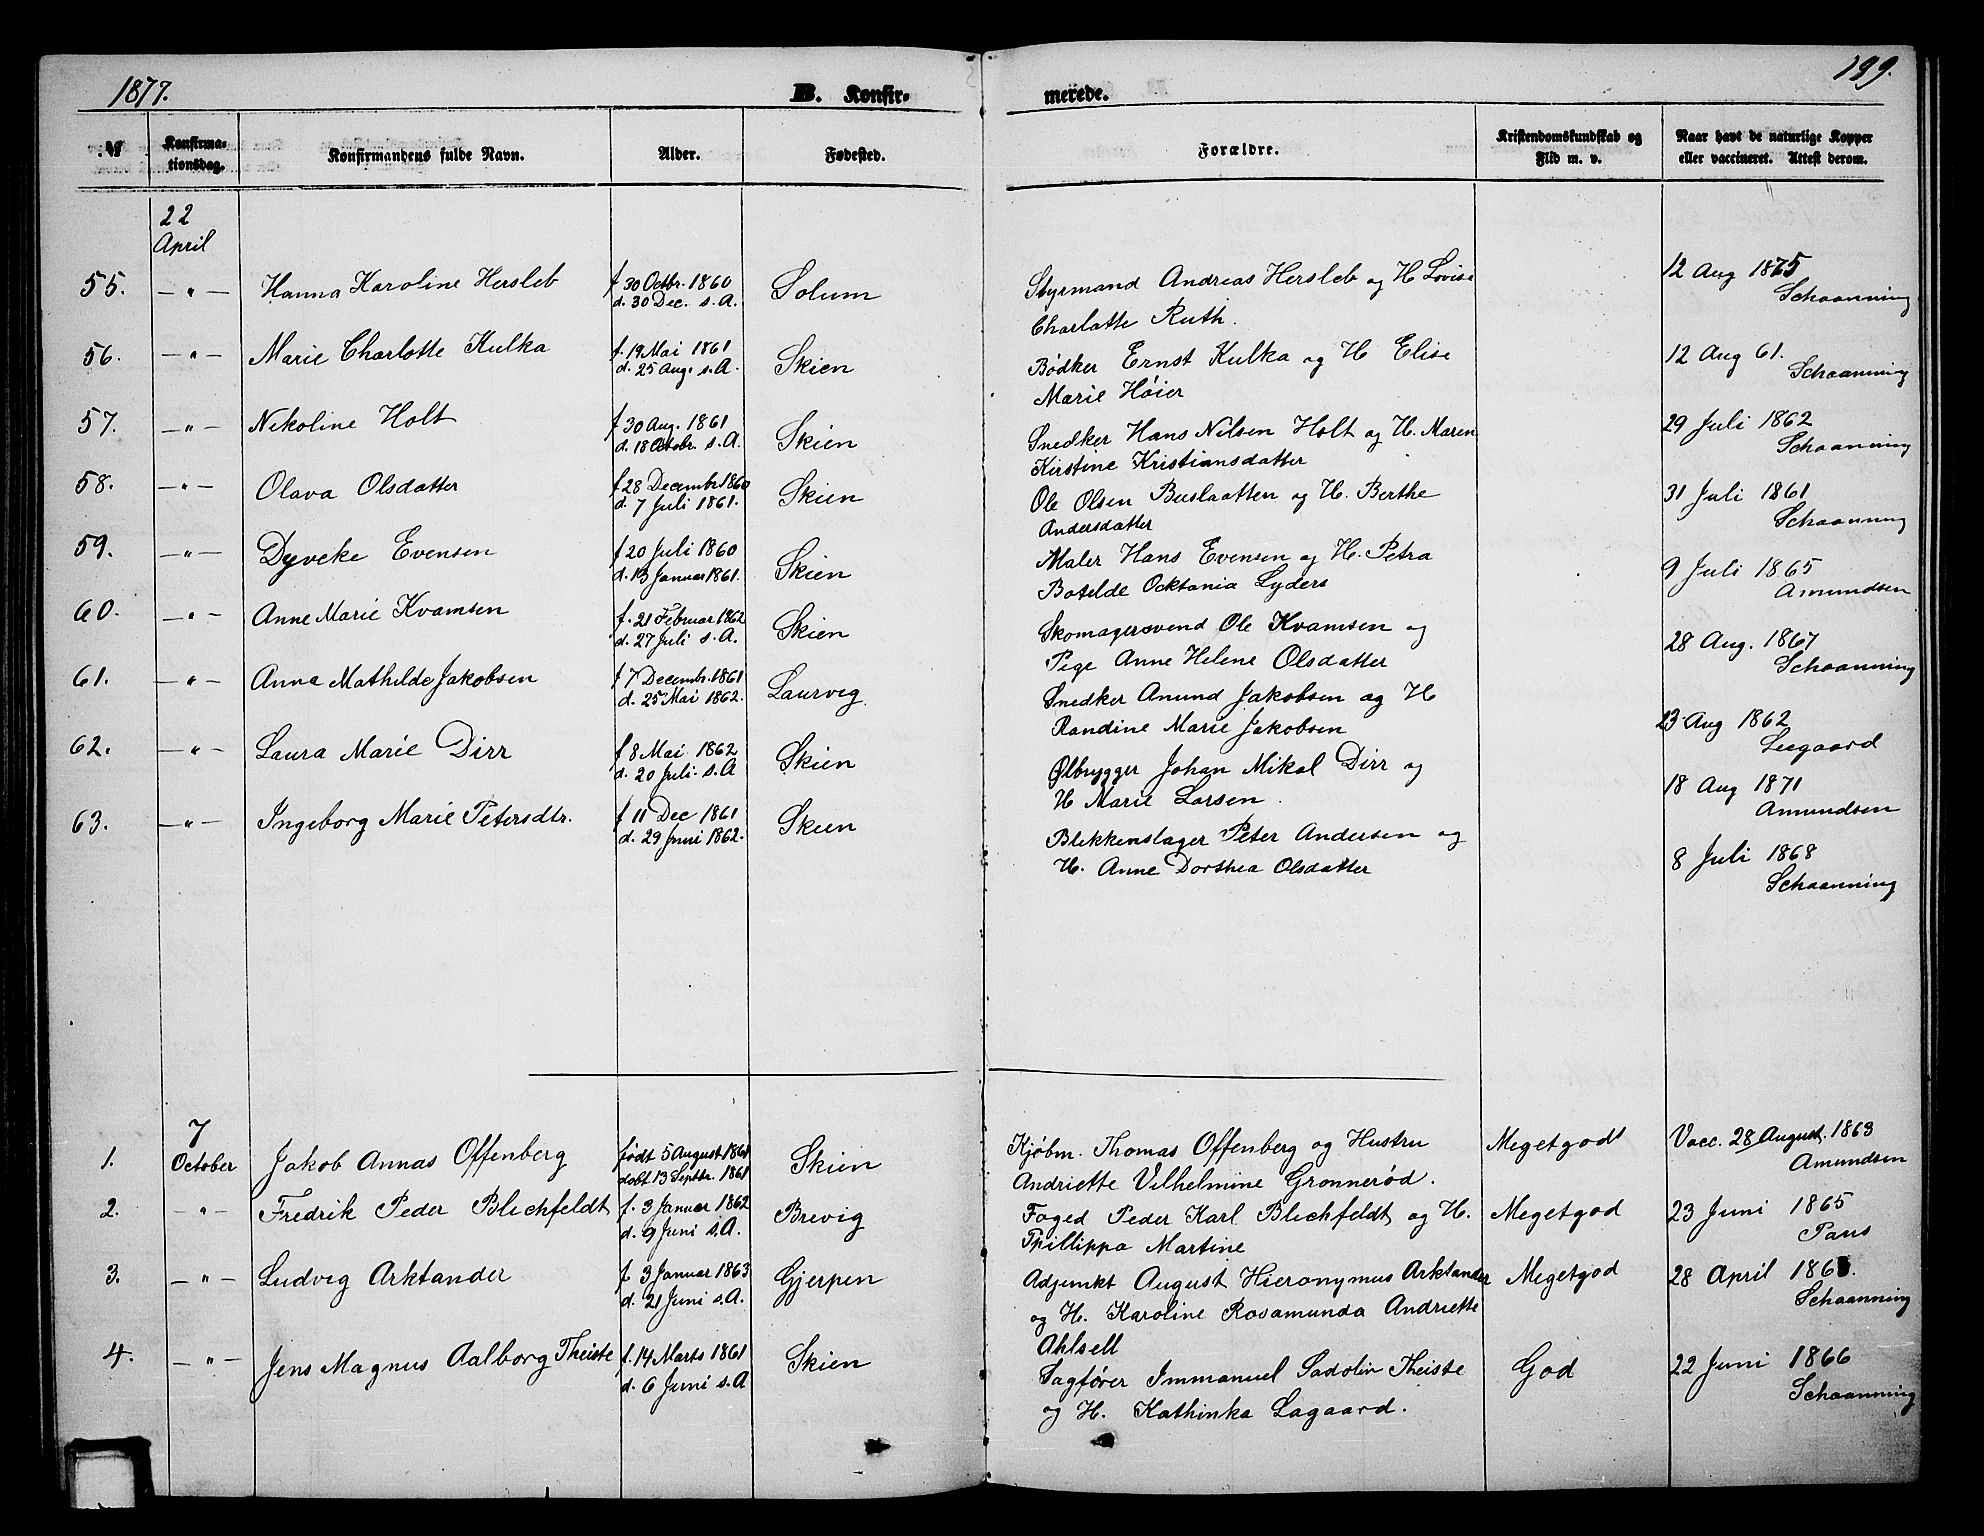 1877.
B. Konfir-
merede.
199.
№
Konfirma-
tionsdag.
Konfirmandens fulde Navn.
Alder.
Fødested.
Forældre.
Kristendomskundskab og
Flid m. v.
Naar havt de naturlige Kopper
eller vaccineret. Attest derom.
22
April
55. —"— Hanna Karoline Hersleb f 30 Octbr. 1860 Solum Styrmand Andreas Hersleb og H Lovise 12 Aug 1875
d. 30 Dec. s.A. Charlotte Ruth. Schaanning
56. —"— Marie Charlotte Kulka f. 19 Mai 1861 Skien Bødker Ernst Kulka og H Elise 12 Aug 61.
d. 25 Aug. s.A. Marie Höier Schaanning
57. —"— Nikoline Holt f 30 Aug. 1861 Skien Snedker Hans Nilsen Holt og H. Maren 29 Juli 1862
d. 18 Octobr. s.A. Kirstine Kristiansdatter Schaanning
58. —"— Olava Olsdatter f 28 Decembr 1860 Skien Ole Olsen Buslaatten og H. Berthe 31 Juli 1861
d. 7 Juli 1861. Andersdatter Schaanning
59. —"— Dyveke Evensen f 20 Juli 1860 Skien Maler Hans Evensen og H. Petra 9 Juli 1865
d. 13 Januar 1861. Botelde Ocktania Lyders Amundsen
60. —"— Anne Marie Kvamsen f. 21 Februar 1862 Skien Skomagersvend Ole Kvamsen og 28 Aug. 1867
d. 27 Juli s.A. Pige Anne Helene Olsdatter Schaanning
61. —"— Anna Mathilde Jakobsen f 7 Decembr. 1861 Laurvig Snedker Anund Jakobsen og H 23 Aug 1862
d. 25 Mai 1862. Randine Marie Jakobsen Leegaard
62. —"— Laura Marie Dirr f 8 Mai 1862 Skien Ølbrygger Johan Mikal Dirr og 18 Aug 1871
d. 20 Juli. s.A H Marie Larsen. Amundsen
63. —"— Ingeborg Marie Petersdtr. f 11 Dec 1861 Skien Blikkenslager Peter Andersen og 8 Juli 1868
d. 29 Juni 1862. H. Anne Dorthea Olsdatter Schaanning
7
1. October Jakob Annas Offenberg født 5 August 1861 Skien Kjøbm. Thomas Offenberg og Hustru Megetgodt Vacc. 28 August. 1863
døbt 13 Septbr. 1861 Andriette Vilhelmine Grønnerød. Amundsen
2. —"— Fredrik Peder Blichfeldt f. 3 Januar 1862 Brevig Foged Peder Karl Blichfeldt og H. Megetgod 23 Juni 1865
d. 9 Juni s.A. Phillippa Martine Paus
3. —"— Ludvig Arktander f. 3 Januar 1863 Gjerpen Adjunkt August Hieronymus Arktander Megetgod 28 April 1865.
d. 21 Juni s.A. og H. Karoline Rosamunda Andriette Schaanning
Ahlsell
4. —"— Jens Magnus Aalborg Theiste f. 14 Marts 1861 Skien Sagfører Immanuel Sadolin Theiste God 22 Juni 1866
d. 6 Juni s.A og H. Kathinka Lagaard. Schaanning